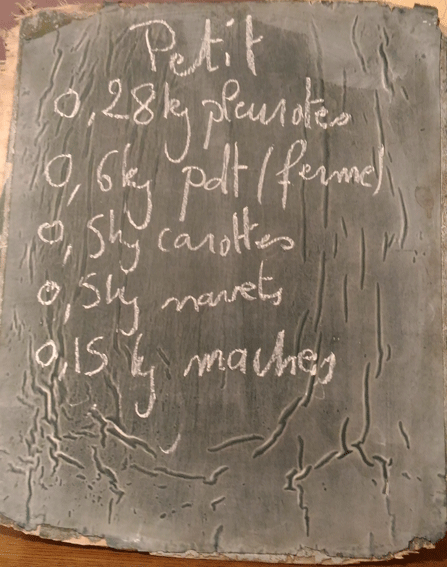 Petit
0,28kg pleurotes
0,6kg pdt (ferme)
0,5kg carottes
0,5kg navets
0,15 kg maches